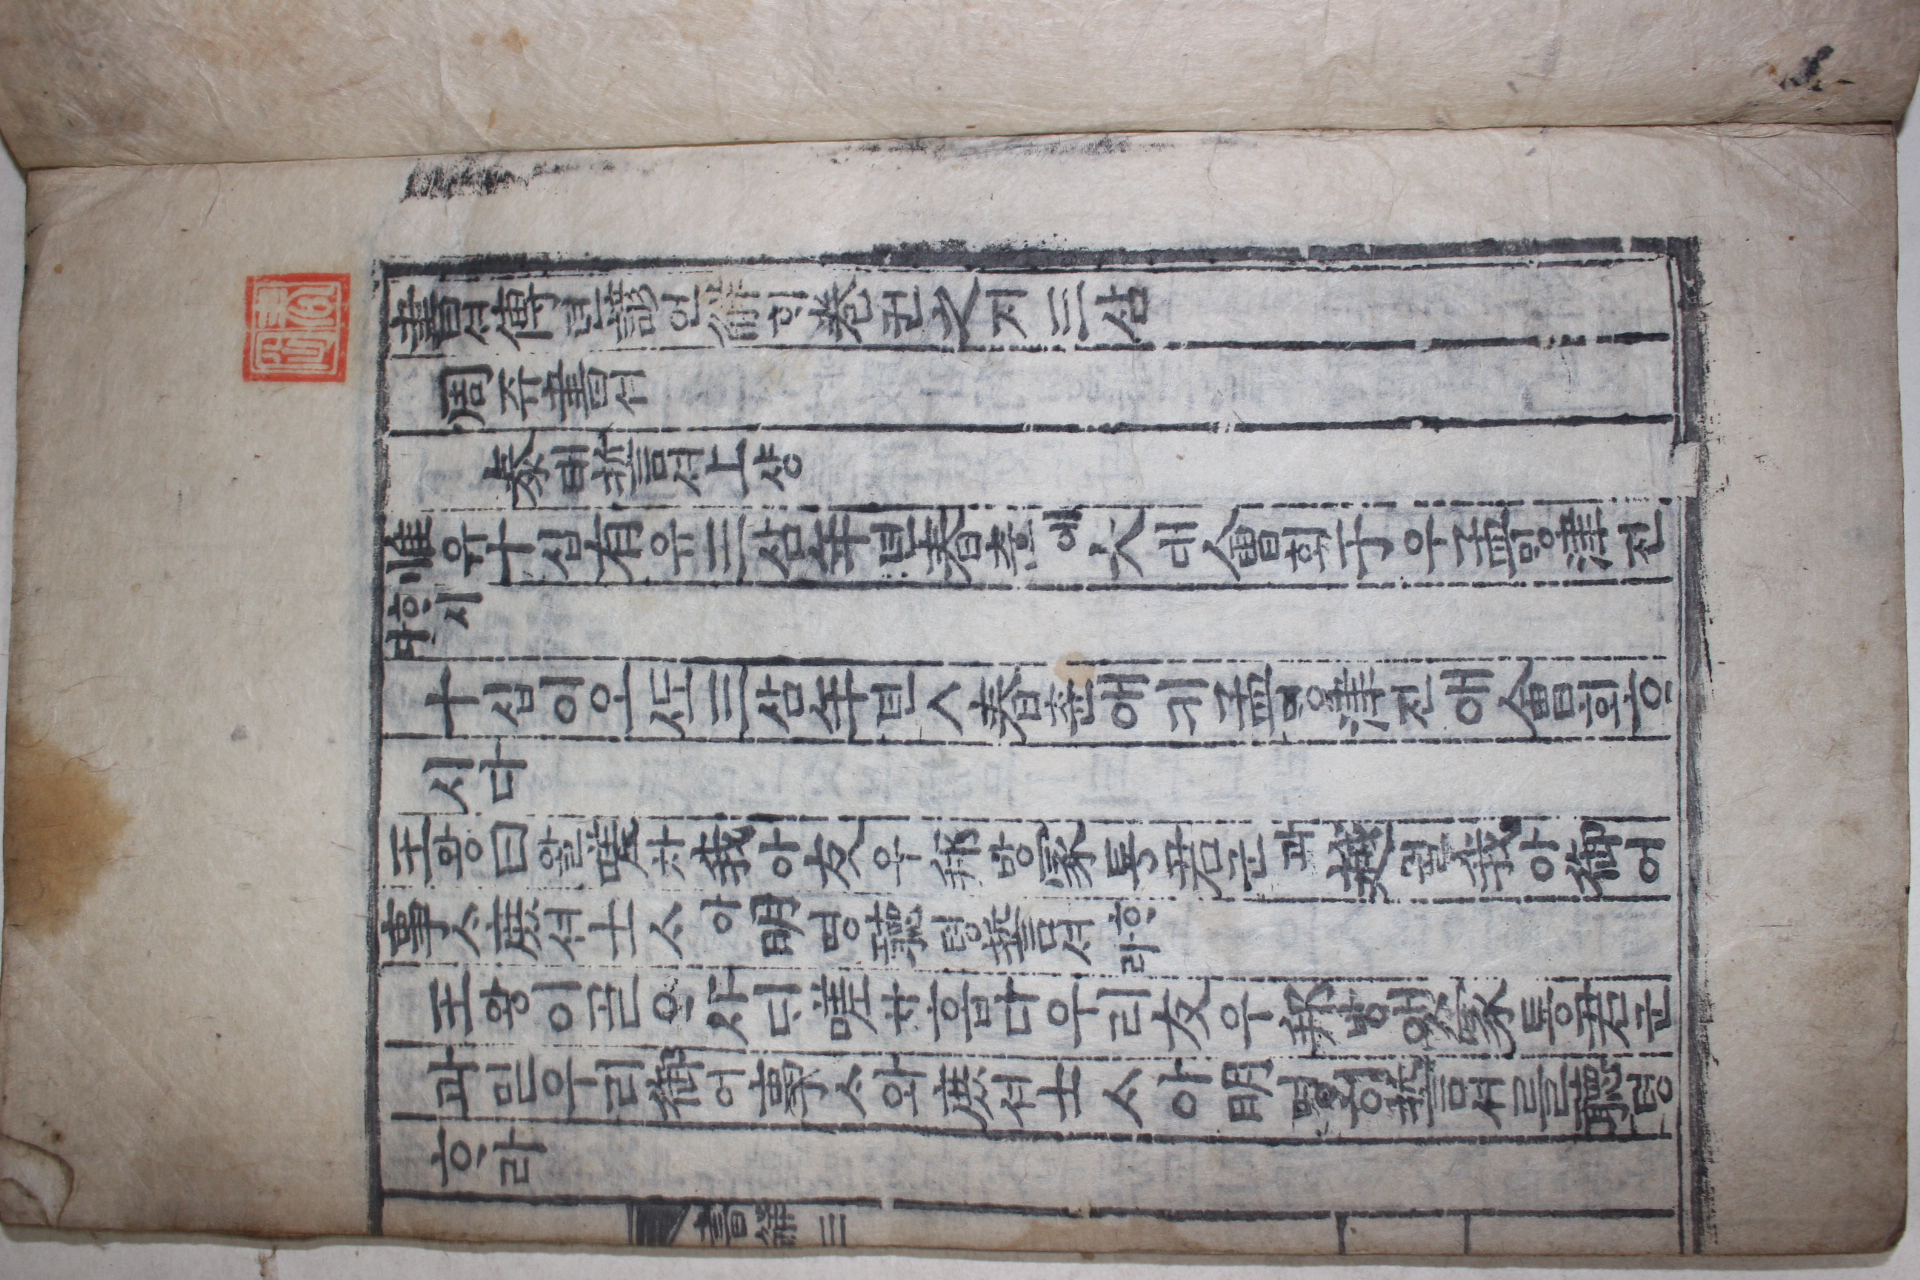 書셔傳뎐諺언解ᄒᆡ卷권之지三삼
周쥬書셔
泰태誓셔上샹
惟유十십有유三삼年년春츈에大대會회于우孟ᄆᆡᆼ津진
ᄒᆞ시다
十십이오ᄯᅩ三삼年년ㅅ春츈애키孟ᄆᆡᆼ津진애會회ᄒᆞ
시다
王왕曰왈嗟차我아友우邦방冢툥君군과越월我아御어
事ᄉᆞ庶셔士ᄉᆞ아明명聽텽誓셔ᄒᆞ라
王왕이ᄀᆞᆯᄋᆞ샤ᄃᆡ嗟차홉다우리友우邦방앳冢툥君군
과믿우리御어事ᄉᆞ와庶셔士ᄉᆞ아明명히誓셔ᄅᆞᆯ聽텽
ᄒᆞ라
書解 三